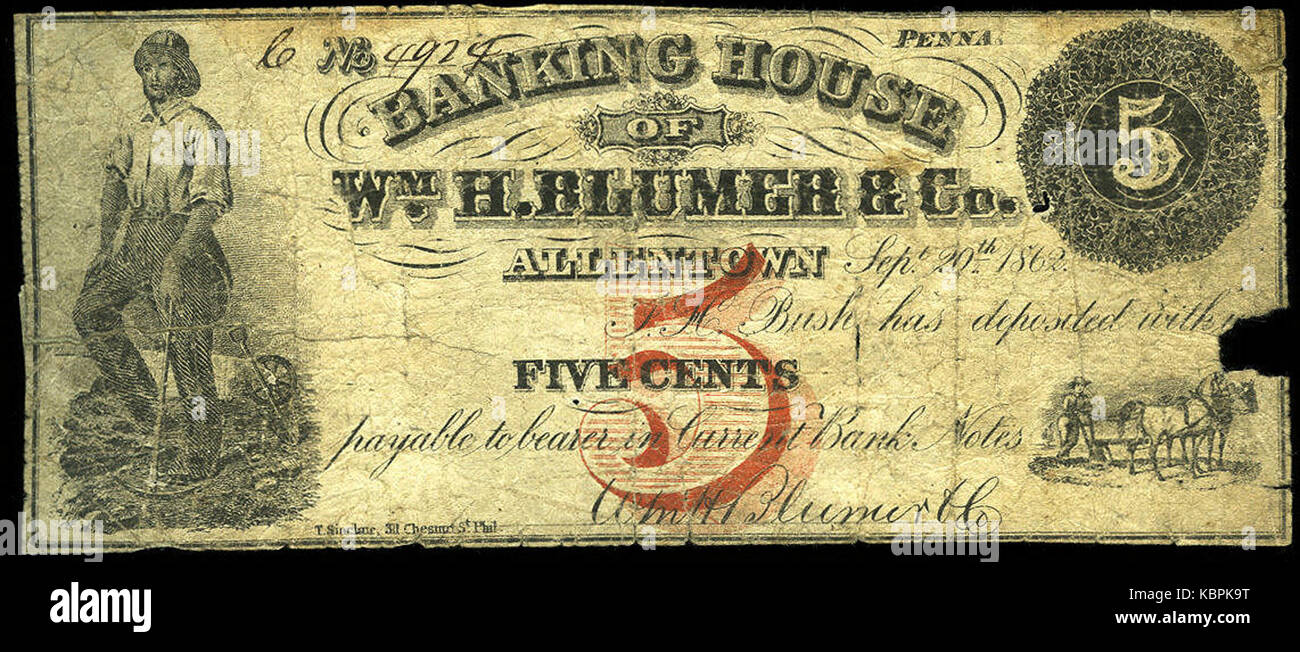 6 No 4924 PENNA.
BANKING HOUSE
OF
WM. H. BLUMER & CO.
ALLENTOWN Sept. 29th. 1862
J. H. Bush, has deposited with
FIVE CENTS
payable to bearer in Current Bank Notes
Wm H Blumer & Co
T. Sinclair, 311 Chesnut St Phil
5
5
alamy
Image ID: KBPK9T
www.alamy.com